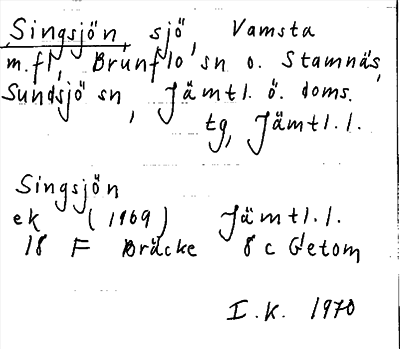 Singsjön, sjö, Vamsta
m.fl, Brunflo sn o. Stamnäs,
Sundsjö sn, Jämtl. ö. doms.
tg, Jämtl. l.
Singsjön
ek (1969) Jämtl. l.
18 F Bräcke 8 c Getom
I.K. 1970